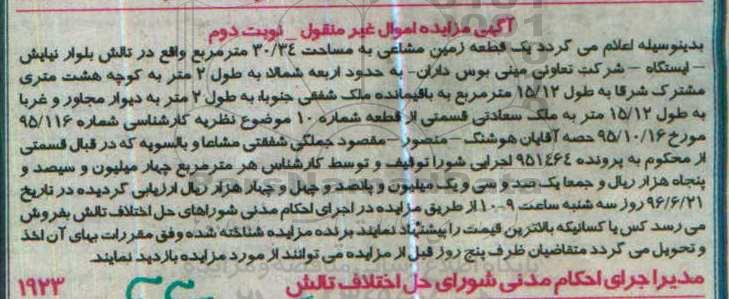 آگهی مزایده اموال غیر منقول _ نوبت دوم
بدینوسیله اعلام می گردد یک قطعه زمین مشاعی به مساحت ۳۰/۳۴ مترمربع واقع در تالش بلوار نیایش
– ایستگاه – شرکت تعاونی مینی بوس داران- به حدود اربعه شمالا: به طول ۲ متر به کوچه هشت متری
مشترک شرقا به طول ۱۵/۱۲ مترمربع به باقیمانده ملک شفقی جنوبا، به طول ۲ متر به دیوار مجاور و غربا
به طول ۱۵/۱۲ متر به ملک سعادتی قسمتی از قطعه شماره ۱۰ موضوع نظریه کارشناسی شماره ۹۵/۱۱۶
مورخ ۹۵/۱۰/۱۶ حصه آقایان هوشنگ – منصور – مقصود جملگی شفقتی مشاعا و بالسویه که در قبال قسمتی
از محکوم به پرونده ۹۵۱۴۶۴ اجرایی شورا توقیف و توسط کارشناس هر مترمربع چهار میلیون و سیصد و
پنجاه هزار ریال و جمعا یک صد و سی و یک میلیون و پانصد و چهل و چهار هزار ریال ارزیابی گردیده در تاریخ
۹۶/۶/۲۱ روز سه شنبه ساعت ۹-۱۰ از طریق مزایده در اجرای احکام مدنی شوراهای حل اختلاف تالش بفروش
می رسد کس یا کسانیکه بالاترین قیمت را پیشنهاد نمایند برنده مزایده شناخته شده وفق مقررات بهای آن اخذ
و تحویل می گردد متقاضیان ظرف پنج روز قبل از مزایده می توانند از مورد مزایده بازدید نمایند.
مدیر اجرای احکام مدنی شورای حل اختلاف تالش
۱۹۲۳